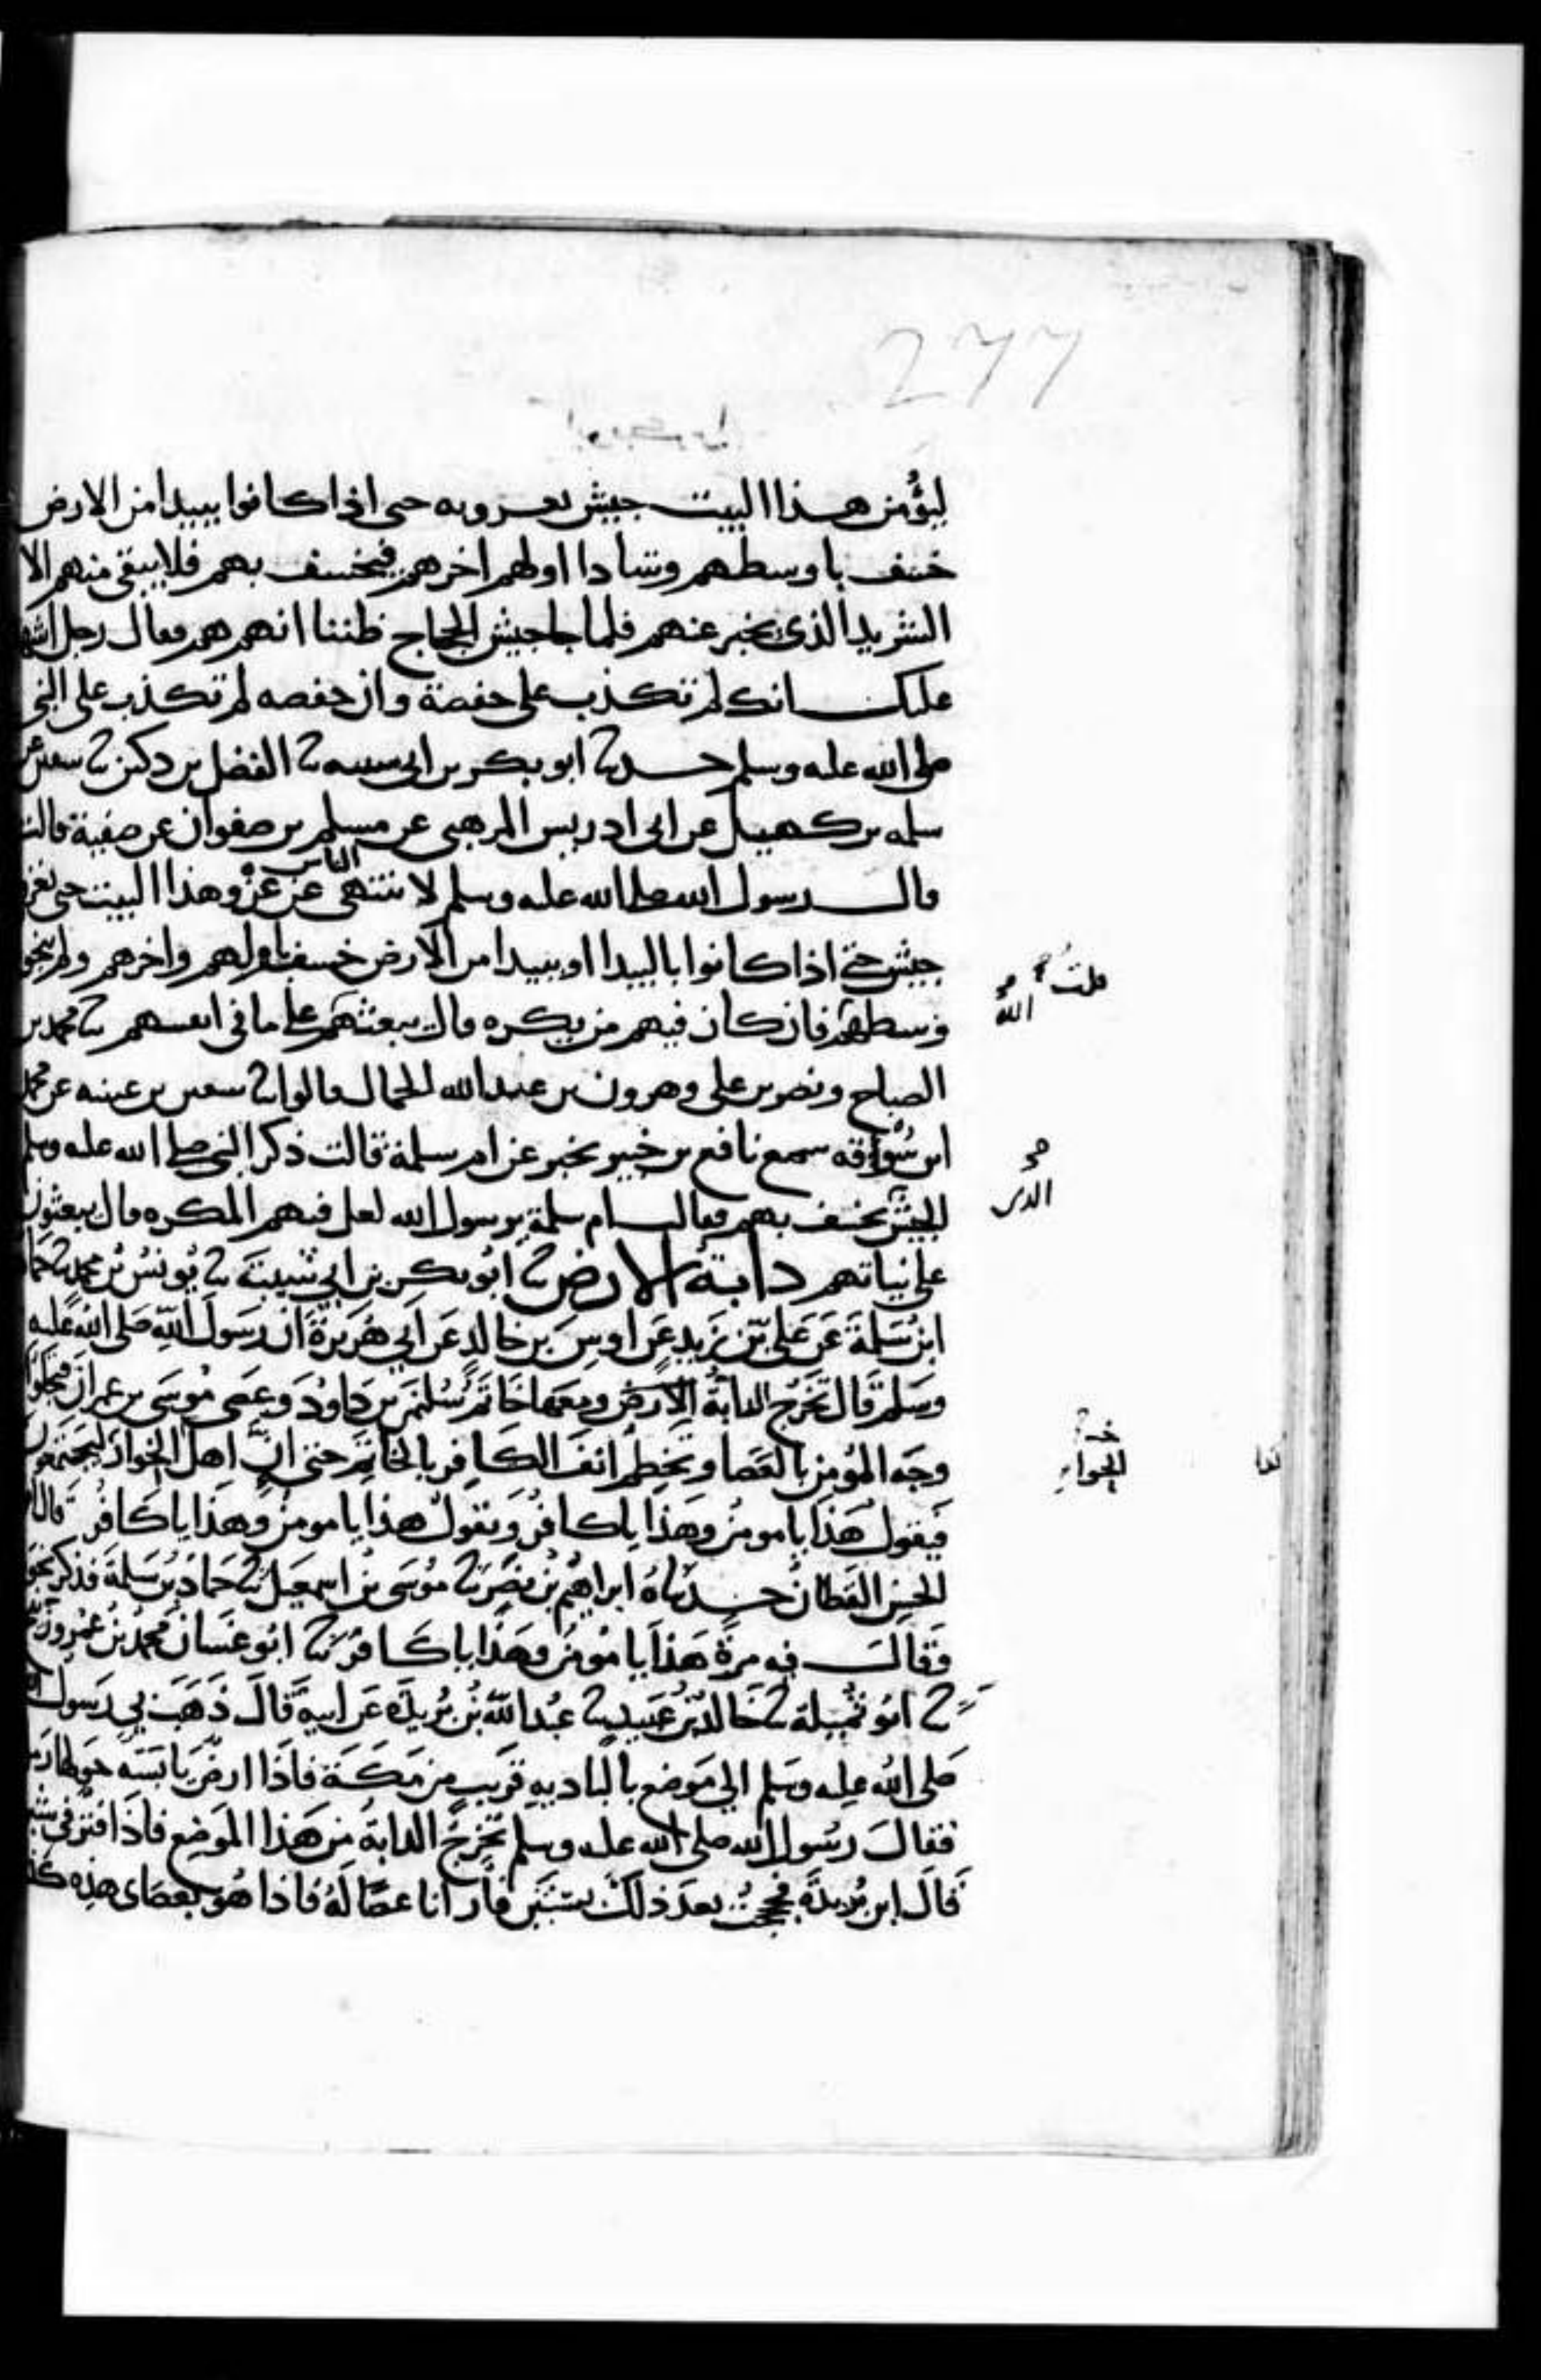 277
ليؤمن هذا البيت جيش يغزونه حتى اذا كانوا ببيدا من الارض
خسف باوسطهم وتنادا اولهم اخرهم فيخسف بهم فلا يبقى منهم الا
الشريد الذي يخبر عنهم فلما جا جيش الحجاج ظننا انهم هم فقال رجل اشهد
عليك انك لم تكذب على حفصة وان حفصه لم تكذب على النبي
صلى الله عليه وسلم حدثنا ابو بكر بن ابي شيبه ثنا الفضل بن دكين ثنا سفين عن
سلمه بن كهيل عن ابي ادريس المرهبي عن مسلم بن صفوان عن صفية قالت
قال رسول الله صلى الله عليه وسلم لا ينتهي الناس عن غزو هذا البيت حتى يغزو
جيش حتى اذا كانوا بالبيدا او ببيدا من الارض خسف باولهم واخرهم ولم ينجو
وسطهم فان كان فيهم من يكره قال يبعثهم على ما في انفسهم ثنا محمد بن
الصباح ونصر بن علي وهرون بن عبد الله الحمال قالوا ثنا سفين بن عيينه عن محمد
ابن سوقه سمع نافع بن جبير يخبر عن ام سلمة قالت ذكر النبي صلى الله عليه وسلم
الجيش يخسف بهم فقالت ام سلمة يرسول الله لعل فيهم المكره قال يبعثون
على نياتهم دابة الارض ثنا ابو بكر بن ابي شيبة ثنا يونس بن محمد ثنا حماد
ابن سلمة عن علي بن زيد عن اوس بن خالد عن ابي هريرة ان رسول الله صلى الله عليه
وسلم قال تخرج الدابة الارض ومعها خاتم سليمن بن داود وعصى موسى بن عمران فتجلوا
وجه المؤمن بالعصا وتخطم انف الكافر بالخاتم حتى ان اهل الخوان ليجتمعون
فيقول هذا يا مومن وهذا يا كافر ويقول هذا يا مومن وهذا يا كافر قال ابو
الحسن القطان حدثناه ابراهيم بن نصر ثنا موسى بن اسمعيل ثنا حماد بن سلمة فذكر نحوه
وقال فيه مرة هذا يا مؤمن وهذا يا كافر ثنا ابو غسان محمد بن عمرو
ثنا ابو تميلة ثنا خالد بن عبيد ثنا عبد الله بن بريدة عن ابيه قال ذهب بي رسول الله
صلى الله عليه وسلم الى موضع بالباديه قريب من مكة فاذا ارض يابسه حولها رمل
فقال رسول الله صلى الله عليه وسلم تخرج الدابة من هذا الموضع فاذا فتر في شبر
قال ابن بريدة فحججت بعد ذلك بسنين فارانا عصا له فاذا هو بعصاى هذه كذا
قلت
الله
الذى
الحواء